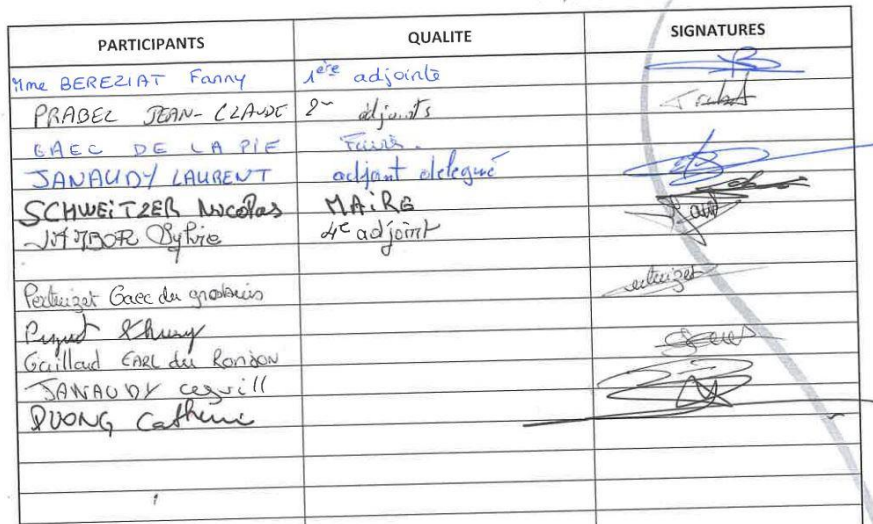 PARTICIPANTS QUALITE SIGNATURES
Mme BEREZIAT Fanny 1ère adjointe
PRABEL JEAN-CLAUDE 2 adjoints
GAEC DE LA PIE
JANAUDY LAURENT adjoint délégué
SCHWEITZER Nicolas MAIRE
Sylvie 4e adjoint
Pertuizet Gaec du
Thierry
Gaillard EARL du Rondon
JANAUDY
DUONG Catherine